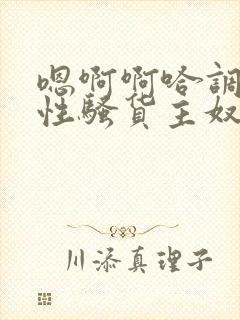 嗯啊啊哈調
性騷货主奴
川添真理子